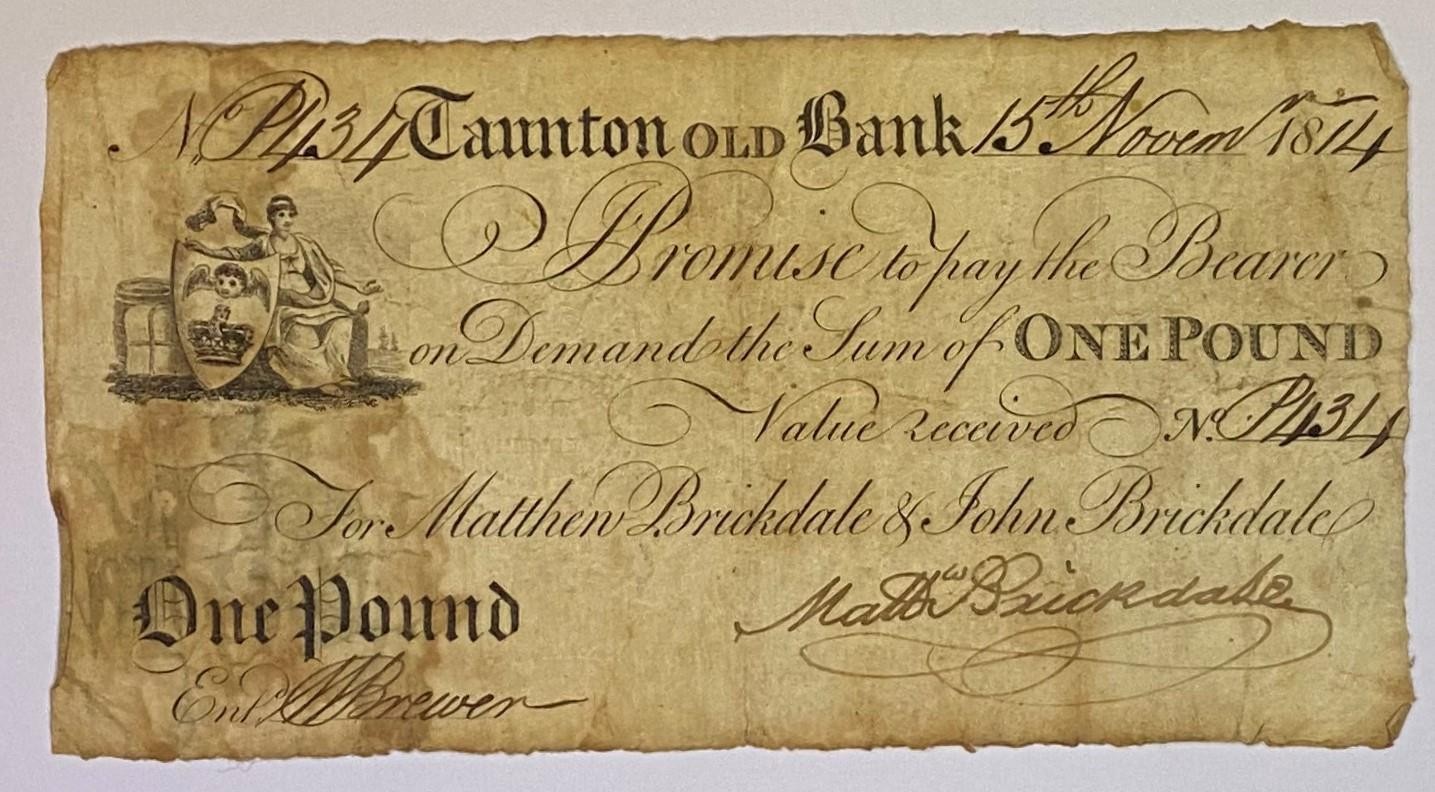 No P1434 Taunton OLD Bank 15th Novemr 1814
I Promise to pay the Bearer
on Demand the Sum of ONE POUND
Value received No. P1434
For Matthew Brickdale & John Brickdale
One Pound Mattw Brickdale
Entd. Brewer